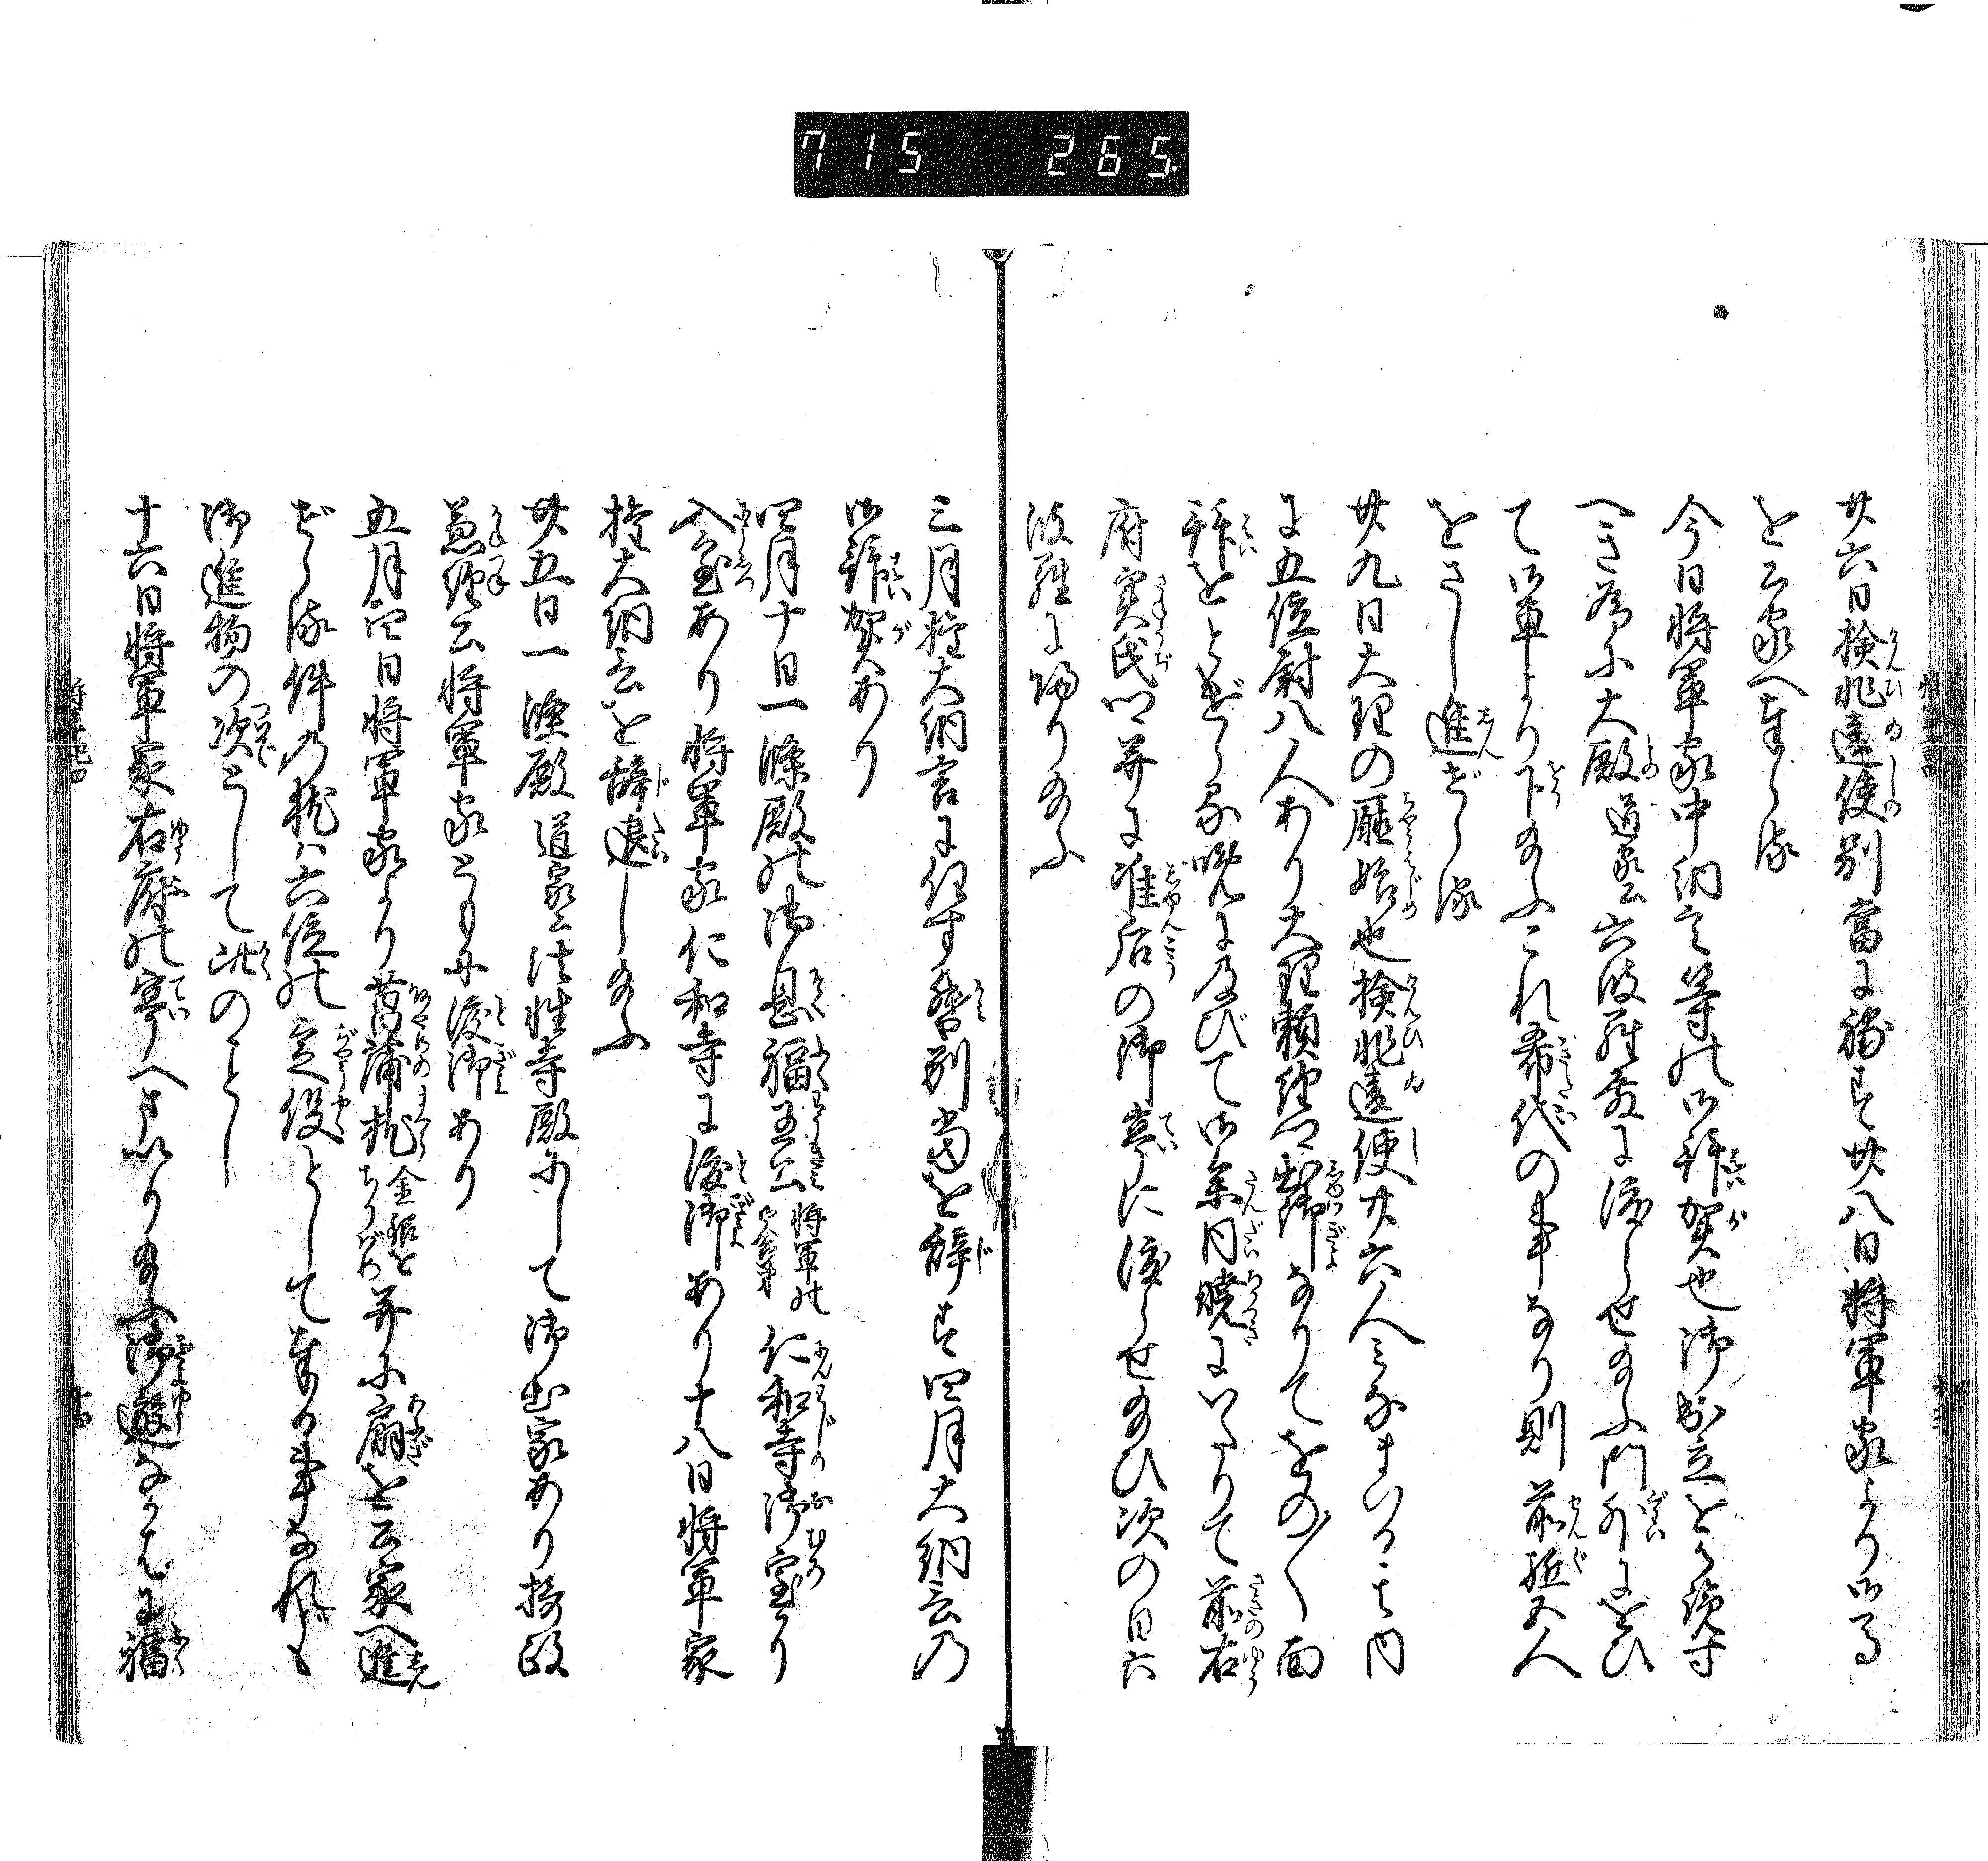 715 265.
廿六日検非違使別當に補す廿八日将軍家より御馬
を公家へ奉らる
今日将軍家中納言等の御拝賀也御出立を覧す
へき為に大殿道家公六波羅殿に渡らせ給ふ門外にをひ
て御車より下給ふこれ希代の事なり則前駈五人
をさし進ぜらる
廿九日大理の廳始也検非違使廿六人みなまいる其内
に五位尉八人あり大理頼経卿出御なりてをの〱面
拝をとげらる晩に及びて御参内暁にいたりて前右
府実氏公并に准后の御亭に渡らせ給ひ次の日六
波羅に帰り給ふ
三月権大納言に任す督別当を辞す四月大納言の
御拝賀あり
四月十日一條殿の御息福王公将軍の御舎弟仁和寺御室に
入室あり将軍家仁和寺に渡御あり十八日将軍家
権大納言を辞退し給ふ
廿五日一條殿道家公法性寺殿にして御出家あり摂政
兼経公将軍家ともに渡御あり
五月四日将軍家より菖蒲枕金銀を并に扇を公家へ進
ぜらる件の枕は六位の定役として奉る事なれども
御進物の次でとして此のごとし
十六日将軍家右府の亭へまいり給ふ御遊なかばに福